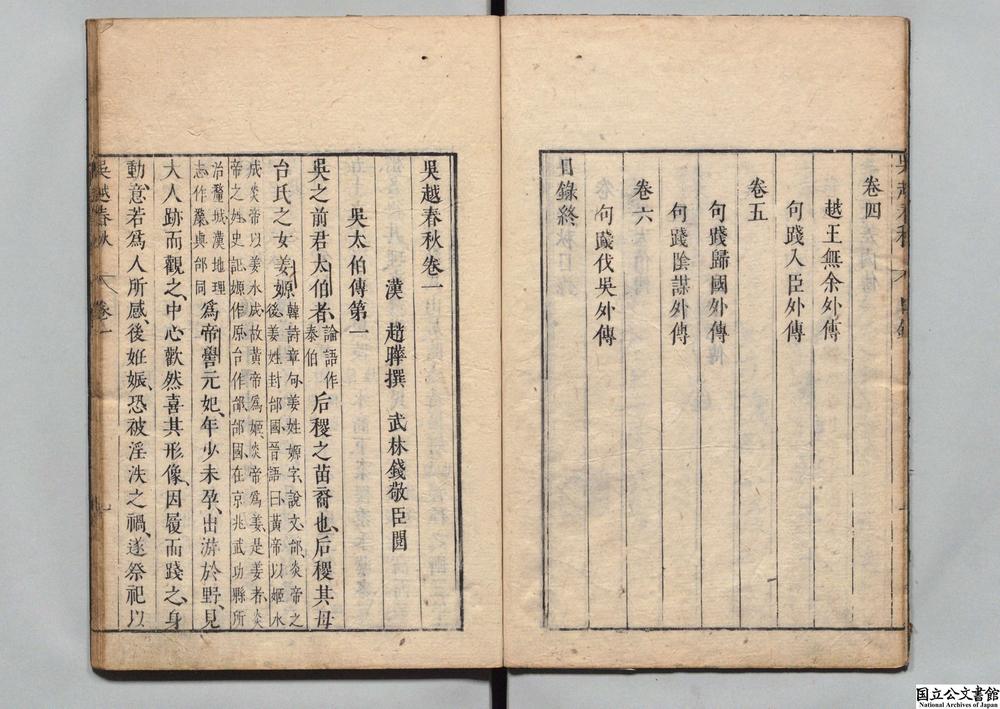 卷四
越王無余外傳
句踐入臣外傳
卷五
句踐歸國外傳
句踐陰謀外傳
卷六
句踐伐吳外傳
目錄終
吳越春秋卷一
漢 趙曄撰 武林錢敬臣閱
吳太伯傳第一
吳之前君太伯者、論語作泰伯后稷之苗裔也、后稷其母
台氏之女姜嫄、韓詩章句、姜姓、嫄字、說文、邰、炎帝之後、姜姓、封邰國、晉語曰、黃帝以姬水
成、炎帝以姜水成、故黃帝爲姬、炎帝爲姜、是姜者、炎帝之姓、史記嫄作原、台作邰、邰國、在京兆武功縣所
治釐城、漢地理志作斄、與邰同爲帝嚳元妃、年少未孕、出游於野、見
大人跡而觀之、中心歡然喜其形像、因履而踐之、身
動、意若爲人所感、後妊娠、恐被淫泆之禍、遂祭祀以
吳越春秋 卷一
国立公文書館
National Archives of Japan